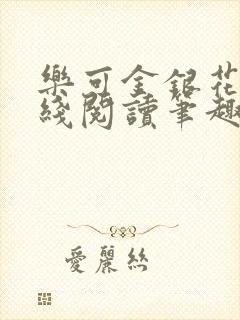 樂可金銀花
綫閱讀筆趣
愛麗絲